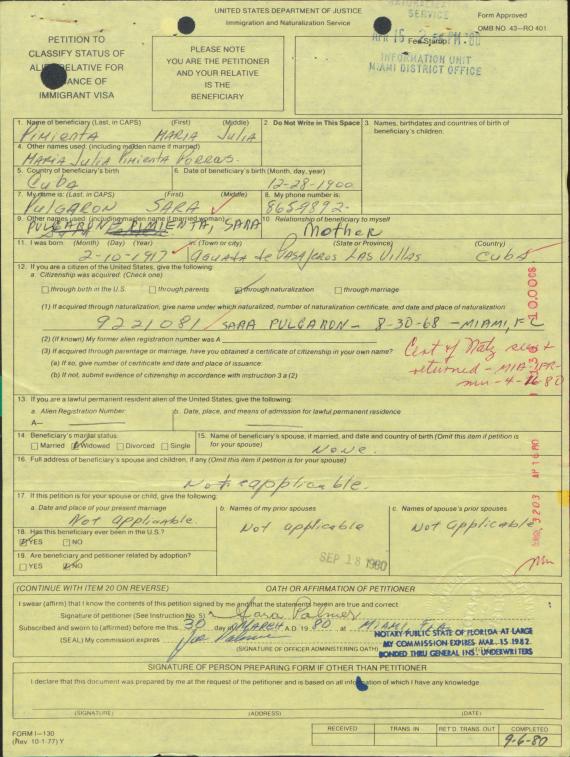 UNITED STATES DEPARTMENT OF JUSTICE
Immigration and Naturalization Service
Form Approved
OMB NO. 43-RO 401
PETITION TO
CLASSIFY STATUS OF
RELATIVE FOR
OF
IMMIGRANT VISA
PLEASE NOTE
YOU ARE THE PETITIONER
AND YOUR RELATIVE
IS THE
BENEFICIARY
Fee Stamp
SERVICE
INFORMATION UNIT
MIAMI DISTRICT OFFICE
1. Name of beneficiary (Last, in CAPS) (First) (Middle)
PIMIENTA MARIA Julia
2. Do Not Write in This Space
3. Names, birthdates and countries of birth of beneficiary's children.
4. Other names used: (including maiden name if married)
MARIA Julia Pimienta Porras.
5. Country of beneficiary's birth
CUBA
6. Date of beneficiary's birth (Month, day, year)
12-28-1900
7. My name is: (Last, in CAPS) (First) (Middle)
PULGARON SARA
8. My phone number is:
8659892-
9. Other names used: (including maiden name if married woman)
PIMIENTA, SARA
10. Relationship of beneficiary to myself
Mother
11. I was born: (Month) (Day) (Year) in: (Town or city) (State or Province) (Country)
2-10-1917 Aguada de Pasajeros LAS VILLAS CUBA
12. If you are a citizen of the United States, give the following:
a. Citizenship was acquired: (Check one)
through birth in the U.S. through parents through naturalization through marriage
(1) If acquired through naturalization, give name under which naturalized, number of naturalization certificate, and date and place of naturalization:
9221081 SARA PULGARON - 8-30-68 - MIAMI, FL
(2) (If known) My former alien registration number was A
(3) If acquired through parentage or marriage, have you obtained a certificate of citizenship in your own name?
(a) If so, give number of certificate and date and place of issuance:
(b) If not, submit evidence of citizenship in accordance with instruction 3 a (2)
Cert of Natz seen &
returned - MIA
13. If you are a lawful permanent resident alien of the United States, give the following:
a. Alien Registration Number
A-
b. Date, place, and means of admission for lawful permanent residence
14. Beneficiary's marital status:
Married Widowed Divorced Single
15. Name of beneficiary's spouse, if married, and date and country of birth (Omit this item if petition is for your spouse)
None.
16. Full address of beneficiary's spouse and children, if any (Omit this item if petition is for your spouse)
Not applicable.
17. If this petition is for your spouse or child, give the following:
a. Date and place of your present marriage
Not applicable.
b. Names of my prior spouses
Not applicable
c. Names of spouse's prior spouses
Not applicable
18. Has this beneficiary ever been in the U.S.?
YES NO
19. Are beneficiary and petitioner related by adoption?
YES NO
SEP 18 1980
(CONTINUE WITH ITEM 20 ON REVERSE) OATH OR AFFIRMATION OF PETITIONER
I swear (affirm) that I know the contents of this petition signed by me and that the statements herein are true and correct.
Signature of petitioner (See Instruction No. 5)
Subscribed and sworn to (affirmed) before me this 30 day of MARCH A.D. 19 80, at MIAMI, FLA.
(SEAL) My commission expires
(SIGNATURE OF OFFICER ADMINISTERING OATH)
NOTARY PUBLIC STATE OF FLORIDA AT LARGE
MY COMMISSION EXPIRES MAR. 15 1982
BONDED THRU GENERAL INS. UNDERWRITERS
SIGNATURE OF PERSON PREPARING FORM IF OTHER THAN PETITIONER
I declare that this document was prepared by me at the request of the petitioner and is based on all information of which I have any knowledge.
(SIGNATURE) (ADDRESS) (DATE)
FORM I-130
(Rev. 10-1-77) Y
RECEIVED TRANS. IN RET'D. TRANS. OUT COMPLETED
9-6-80